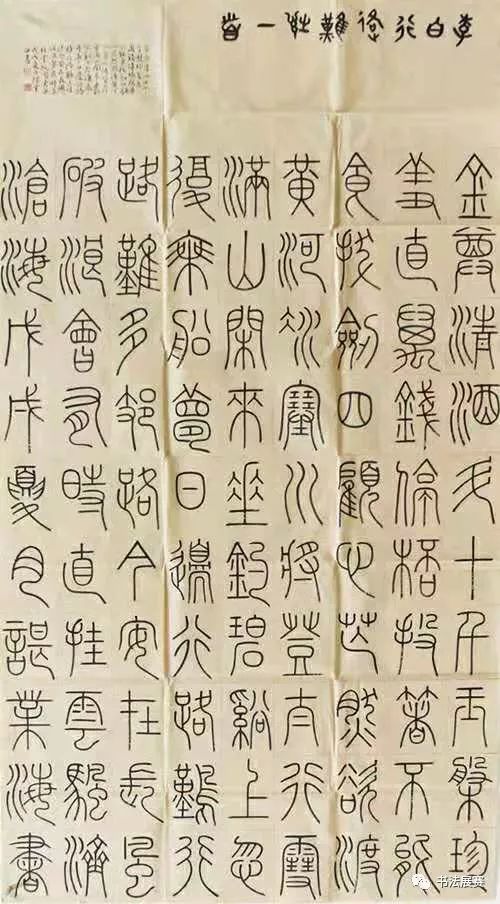 李白行路難其一首
金尊清酒斗十千玉盤珍
羞直萬錢停桮投箸不能
食拔劍四顧心茫然欲渡
黃河冰塞川將登太行雪
滿山閑來坐釣碧谿上忽
復乘船夢日邊行路難行
路難多岐路今安在長風
破浪會有時直挂雲帆濟
滄海戊戌夏月諟業海書
书法展赛